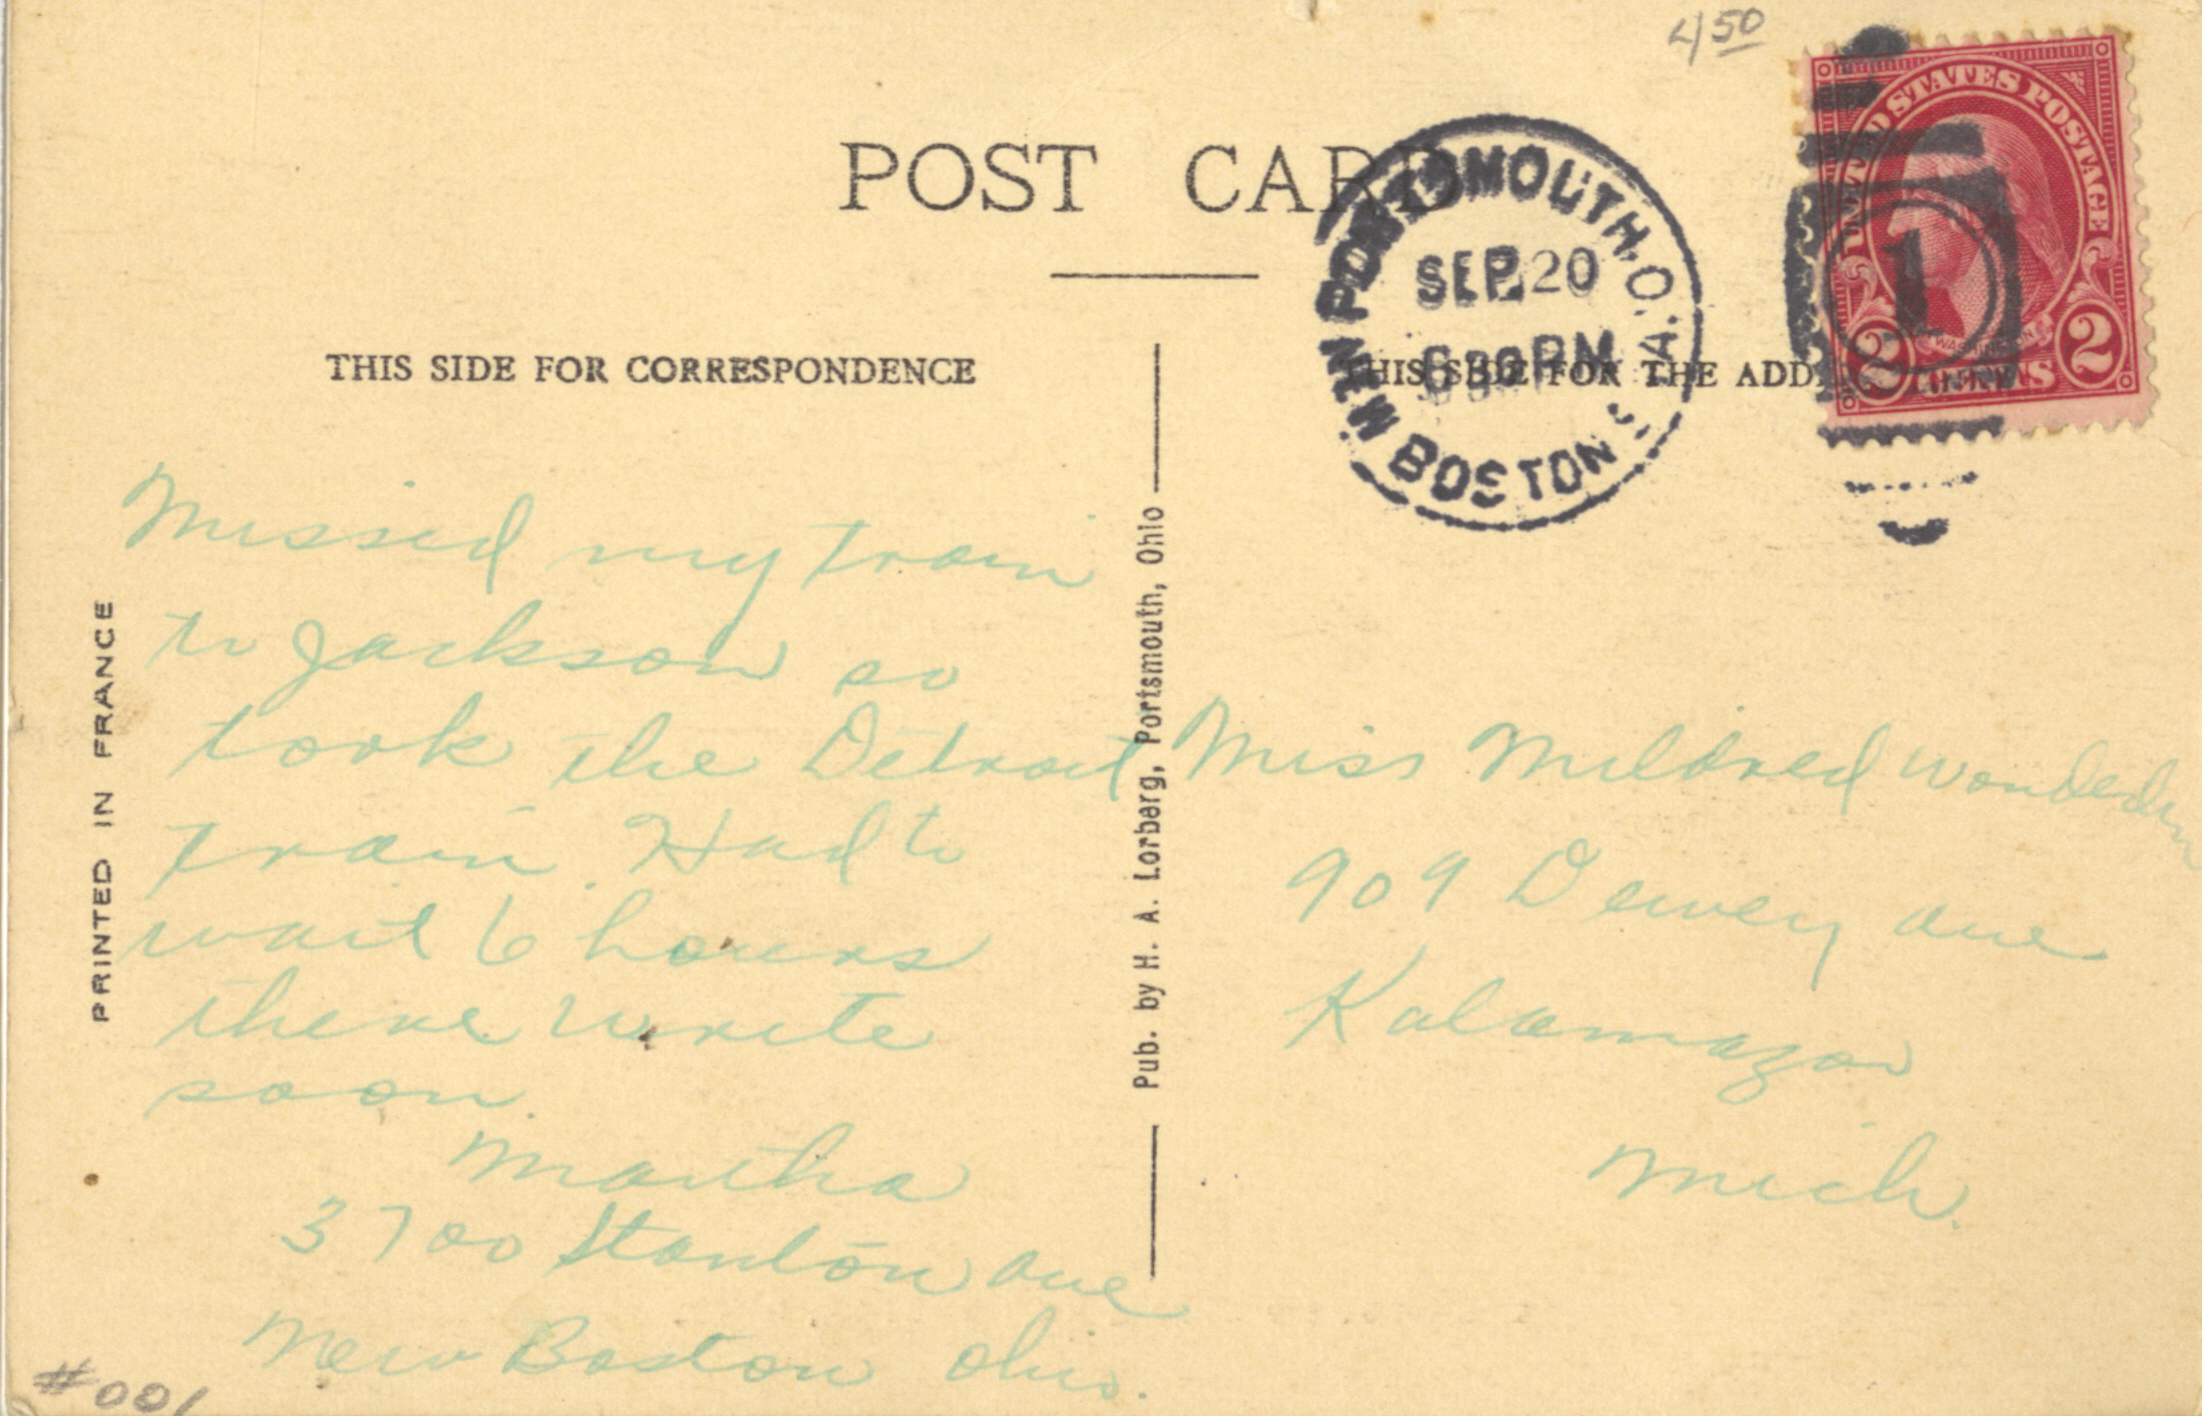 450
POST CARD
PORTSMOUTH, O.
SEP 20
630 PM
BOSTON
UNITED STATES POSTAGE
1
2 CENTS 2
THIS SIDE FOR CORRESPONDENCE
THIS SIDE FOR THE ADD
Missed my train
to Jackson so
took the Detroit
train. Had to
wait 6 hours
there. Write
soon.
Martha
3700 Stanton ave
New Boston Ohio.
PRINTED IN FRANCE
Pub. by H. A. Lorberg, Portsmouth, Ohio
Miss Mildred
909 Dewey ave
Kalamazoo
Mich.
#001